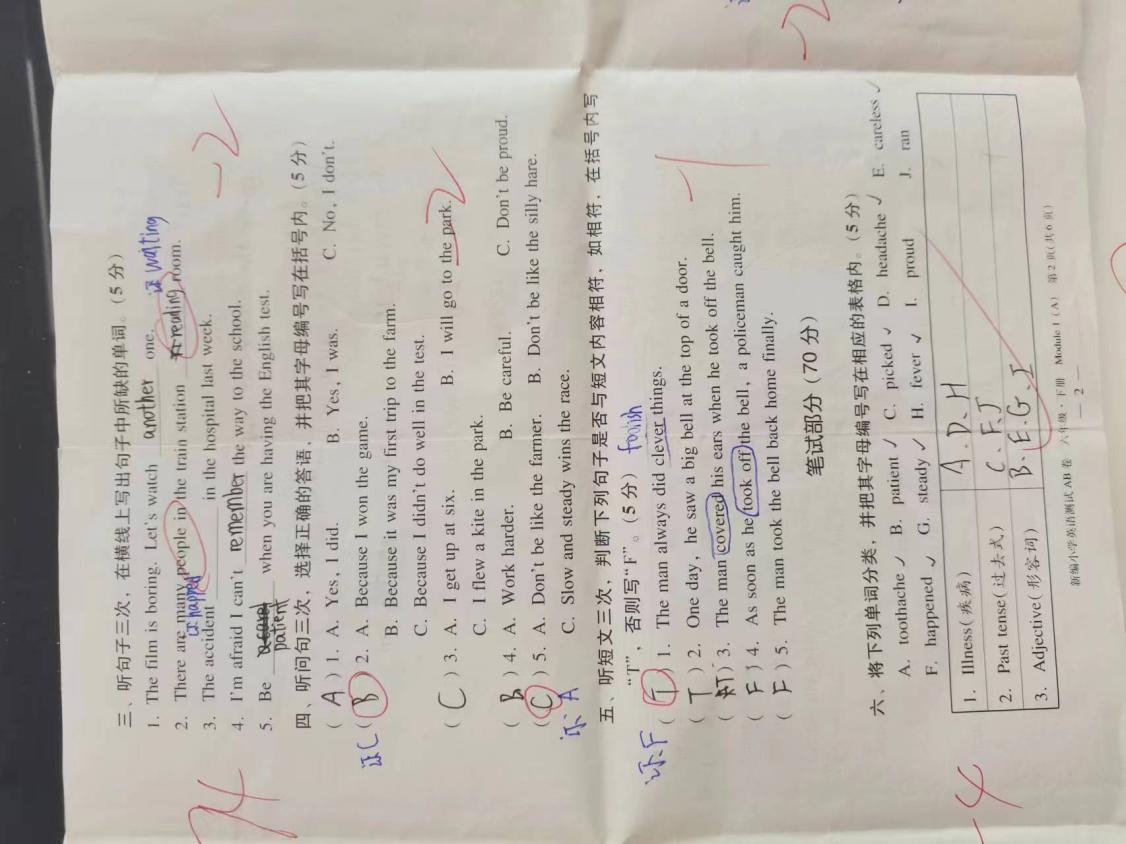 三、听句子三次，在横线上写出句子中所缺的单词。(5分)
1. The film is boring. Let's watch another one. 订 waiting
2. There are many people in the train station reading room.
订 happened
3. The accident ______ in the hospital last week.
4. I'm afraid I can't remember the way to the school.
5. Be patient when you are having the English test.
四、听问句三次，选择正确的答语，并把其字母编号写在括号内。(5分)
( A ) 1. A. Yes, I did. B. Yes, I was. C. No, I don't.
订C ( B ) 2. A. Because I won the game.
B. Because it was my first trip to the farm.
C. Because I didn't do well in the test.
( C ) 3. A. I get up at six. B. I will go to the park.
C. I flew a kite in the park.
( B ) 4. A. Work harder. B. Be careful. C. Don't be proud.
( C ) 5. A. Don't be like the farmer. B. Don't be like the silly hare.
订、A C. Slow and steady wins the race.
五、听短文三次，判断下列句子是否与短文内容相符，如相符，在括号内写
“T”，否则写“F”。(5分) foolish
订、F ( T ) 1. The man always did clever things.
( T ) 2. One day, he saw a big bell at the top of a door.
( T ) 3. The man covered his ears when he took off the bell.
( F ) 4. As soon as he took off the bell, a policeman caught him.
( F ) 5. The man took the bell back home finally.
笔试部分(70分)
六、将下列单词分类，并把其字母编号写在相应的表格内。(5分)
A. toothache ✓ B. patient ✓ C. picked ✓ D. headache ✓ E. careless ✓
F. happened ✓ G. steady ✓ H. fever ✓ I. proud J. ran
1. Illness(疾病) A.D.H
2. Past tense(过去式) C.F.J
3. Adjective(形容词) B.E.G.I
新编小学英语测试AB卷 六年级·下册 Module 1(A) 第2页(共6页)
— 2 —
-2
-2
-1
-4